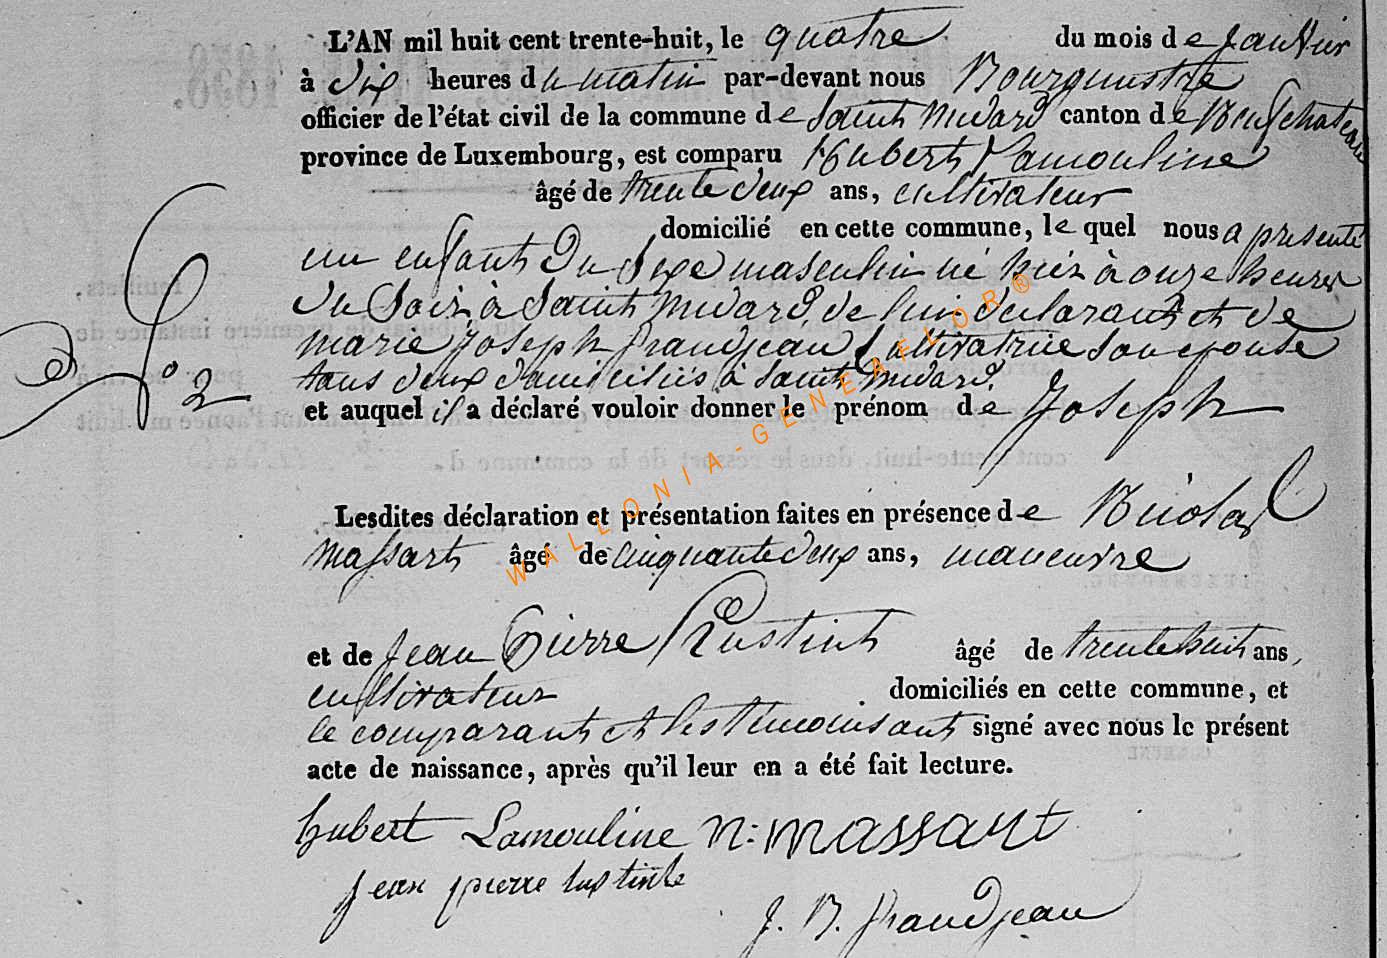 L'AN mil huit cent trente-huit, le quatre du mois de Janvier
à dix heures du matin par-devant nous Bourgmestre
officier de l'état civil de la commune de Saint Medard canton de Neufchateau
province de Luxembourg, est comparu Hubert Lamouline
âgé de trente deux ans, cultivateur
domicilié en cette commune, le quel nous a presenté
un enfant du Sexe masculin né hier à onze heures
du Soir à Saint Medard, de lui declarant et de
marie Joseph Grandjean Cultivatrice Son epouse
tous deux domiciliés à Saint Medard.
et auquel il a déclaré vouloir donner le prénom de Joseph
N° 2
Lesdites déclaration et présentation faites en présence de Nicolas
Massart âgé de cinquante deux ans, manoeuvre
et de Jean Pierre âgé de trente huit ans,
cultivateur domiciliés en cette commune, et
le comparant et les temoins ont signé avec nous le présent
acte de naissance, après qu'il leur en a été fait lecture.
hubert Lamouline N: Massart
jean pierre
J. B. Grandjean
WALLONIA-GENEAFLOR®